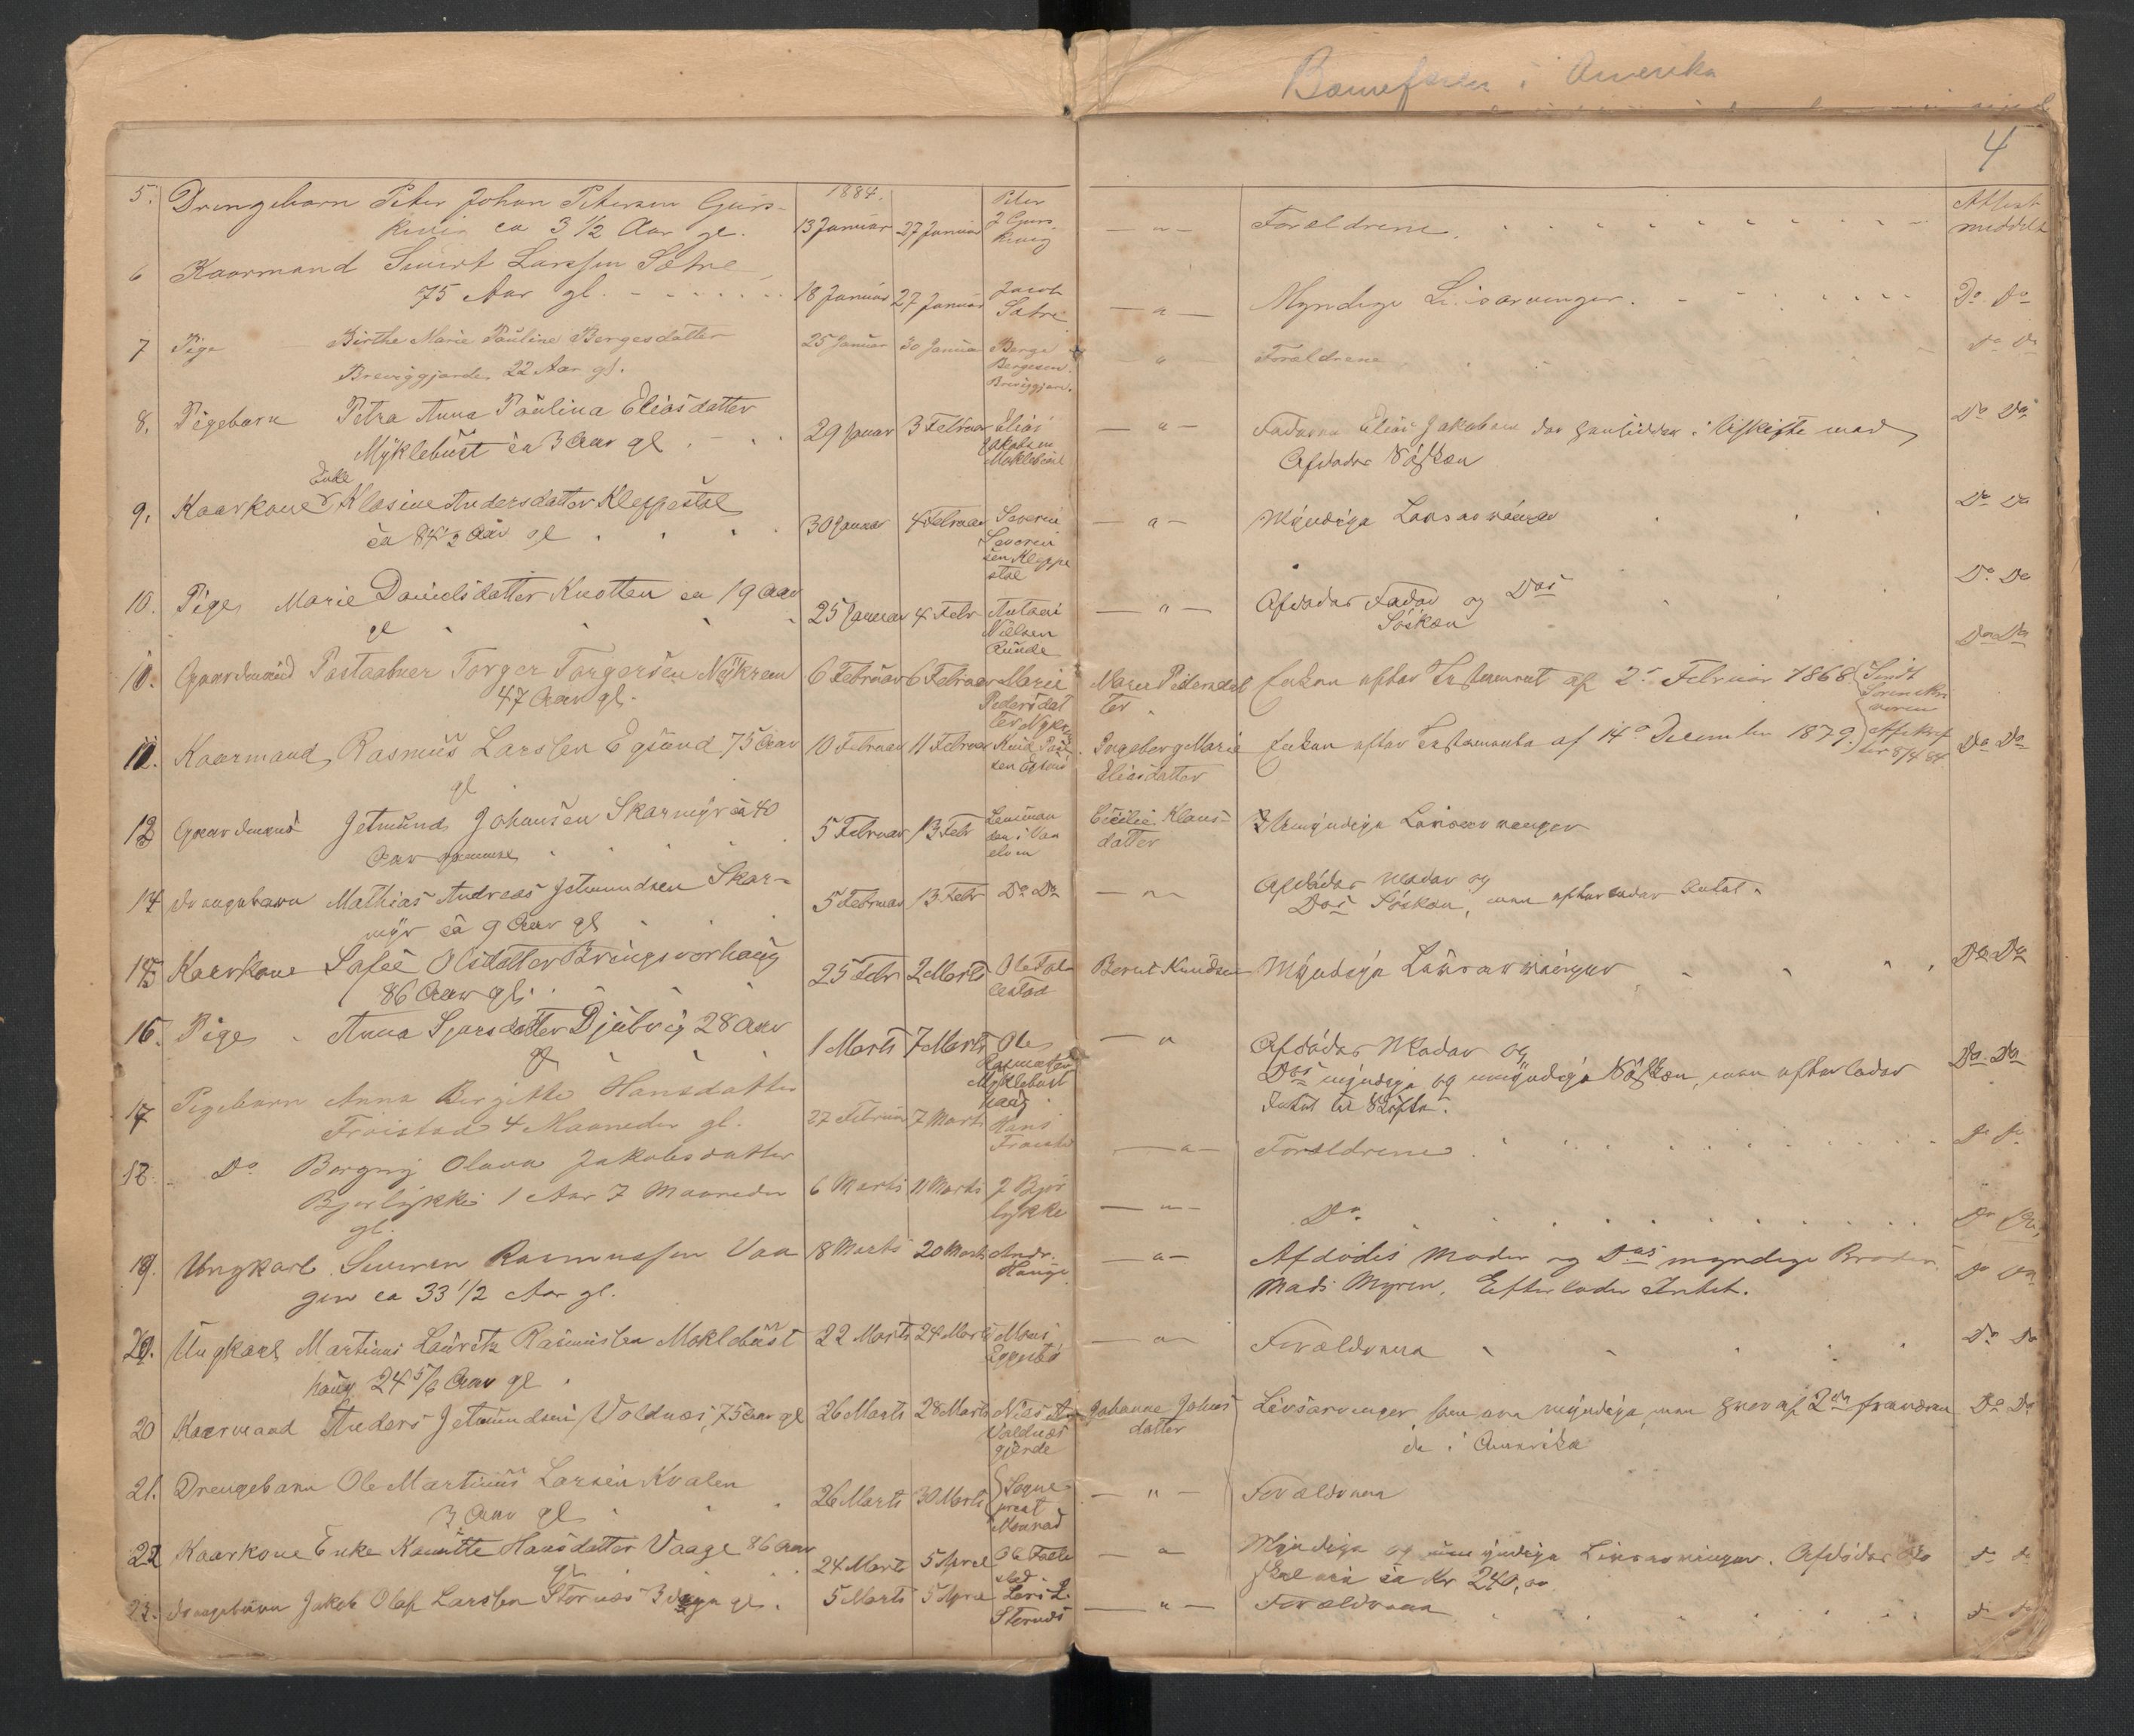 i Amerika
4
5. Drengebarn Peter Johan Petersen Gurs-
kevig ca 3 1/2 Aar gl.
1884.
13 Januar 27 Januar
Peter
J Gurs
kevig
— " —
Forældrene.
Attest
meddelt
6 Kaarmand Sivert Larssen Sætre
75 Aar gl.
18 Januar 27 Januar
Jacob
Sætre
— " —
Myndige Livsarvinger.
Do Do
7 Pige Birthe Marie Pauline Bergesdatter
Breviggjerde 22 Aar gl.
25 Januar 30 Januar
Berge
Bergesen
Breviggjer.
— " —
Forældrene
Do Do
8. Pigebarn Petra Anna Paulina Eliasdatter
Myklebust ca 3 Aar gl
29 Januar 3 Februar
Elias
Jakobsen
Moklebust
— " —
Faderen Elias Jakobsen der med
Afdødes Søsken
Do Do
Enke
9. Kaarkone Klasine Andersdatter Kleppestøl
ca 84 1/2 Aar gl
30 Januar 4 Februar
Severin
Severin
sen Kleppe
støl
— " —
Myndige Livsarvinger
Do Do
10. Pige Marie Danielsdatter Knotten ca 19 Aar
gl
25 Januar 4 Febr
Antoni
Nielsen
Runde
— " —
Afdødes Fader og Das
Søsken
Do Do
11. Gaardmand Postaabner Torger Torgersen Nykrem
47 Aar gl.
6 Februar 6 Februar
Marie
Pedersdat
ter Nykrem
Maren Pedersdat
ter
Enken efter Testament af 2 Februar 1868
Sendt
Sorenskri
veren
Do Do
12. Kaarmand Rasmus Larssen Egsund 75 Aar
gl
10 Februar 11 Februar
Knud
sen
Ingeborg Marie
Eliasdatter
Enken efter Testamente af 14de December 1879.
Afskrif
ter 8/4 84
Do Do
13 Gaardmand Jetmund Johansen Skarmyr ca 40
Aar gammel
5 Februar 13 Febr
Lensman
den i Van
elven
Cicilie Klaus-
datter
Umyndige Livsarvinger
14 Drengebarn Mathias Andreas Jetmundsen Skar-
myr ca 9 Aar gl
5 Februar 13 Febr
Do Do
— " —
Afdødes Moder og
Das Søsken, men efterlader Intet.
15 Kaarkone Sofie Olsdatter Bringsvorhaug
86 Aar gl.
25 Febr 2 Marts
Ole Fol
lestad
Bernt Knudsen
Myndige Livsarvinger
Do Do
16. Pige Anna Sjursdatter Djubvig 28 Aar
gl
1 Marts 7 Marts
Ole
Rasmussen
Myklebust
haug
— " —
Afdødes Moder og
Das myndige og umyndige Søsken, men efterlader
Intet til Skifte.
Do Do
17 Pigebarn Anna Bergitte Hansdatter
Frøistad 4 Maaneder gl.
27 Februar 7 Marts
Hans
Frøistad
— " —
Forældrene
Do Do
18. Do Borgny Olava Jakobsdatter
Bjørlykke 1 Aar 7 Maaneder
gl.
6 Marts 11 Marts
J Bjør
lykke
— " —
Do
Do Do
19. Ungkarl Severen Rasmussen Vaa
gen ca 33 1/2 Aar gl.
18 Marts 20 Marts
Andr.
Hauge
— " —
Afdødes Moder og Das myndige Broder
Mads Myren. Efterlader Intet.
Do Do
20. Ungkarl Martinus Lauritz Rasmussen Moklebust
haug 24 5/6 Aar gl
22 Marts 24 Marts
Mons
— " —
Forældrene
Do Do
20 Kaarmand Anders Jetmundsen Voldnæs, 75 Aar gl
26 Marts 28 Marts
Nils
Voldnæs
gjerde
Johanne Johns
datter
Livsarvinger som ere myndige men hvoraf 2de fraværen
de i Amerika
Do Do
21. Drengebarn Ole Martinus Larsen Kvalen
3 Aar gl
26 Marts 30 Marts
Sogne
prest
Monrad
— " —
Forældrene
22 Kaarkone Enke Hansdatter Vaage 86 Aar
gl
24 Marts 5 April
Ole Folle
stad
— " —
Myndige og umyndige Livsarvinger. Afdødes Bo
skal eie ca Kr 240,00
Do Do
23. Drengebarn Jakob Olaf Larssen Stornes 3 Dage gl.
5 Marts 5 April
Lars L.
Stornes
— " —
Forældrene
Do Do